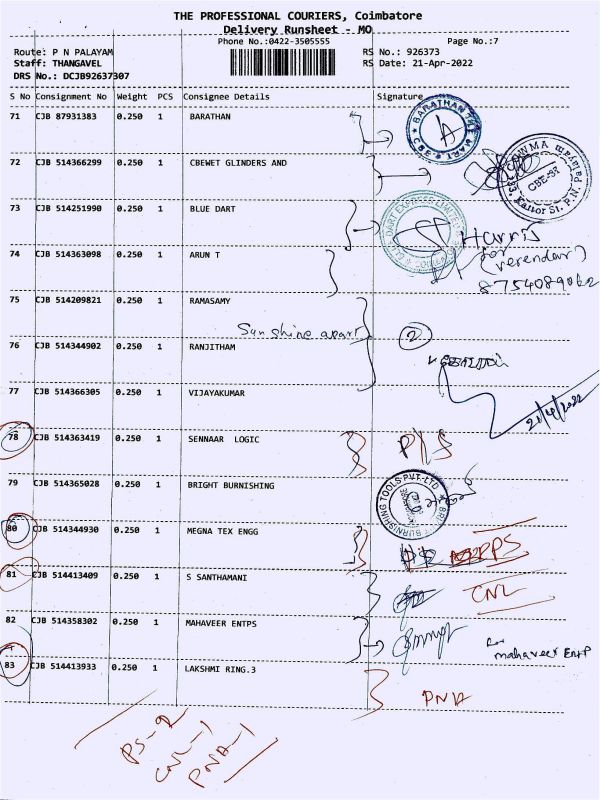 THE PROFESSIONAL COURIERS, Coimbatore
Delivery Runsheet - MO
Phone No.:0422-3505555
Page No.:7
Route: P N PALAYAM
RS No.: 926373
Staff: THANGAVEL
RS Date: 21-Apr-2022
DRS No.: DCJB92637307
S No Consignment No Weight PCS Consignee Details Signature
71 CJB 87931383 0.250 1 BARATHAN
72 CJB 514366299 0.250 1 CBEWET GLINDERS AND
73 CJB 514251990 0.250 1 BLUE DART
Harris
for
(verendar)
8754089062
74 CJB 514363098 0.250 1 ARUN T
75 CJB 514209821 0.250 1 RAMASAMY
Sunshine apart
2
76 CJB 514344902 0.250 1 RANJITHAM
77 CJB 514366305 0.250 1 VIJAYAKUMAR
21/4/2022
78 CJB 514363419 0.250 1 SENNAAR LOGIC
P/S
79 CJB 514365028 0.250 1 BRIGHT BURNISHING
BRIGHT BURNISHING TOOLS PVT-LTD
80 CJB 514344930 0.250 1 MEGNA TEX ENGG
PS
81 CJB 514413409 0.250 1 S SANTHAMANI
CNL
82 CJB 514358302 0.250 1 MAHAVEER ENTPS
for
mahaveer Entp
83 CJB 514413933 0.250 1 LAKSHMI RING.3
PNA
PS-2
CNL-1
PNA-1